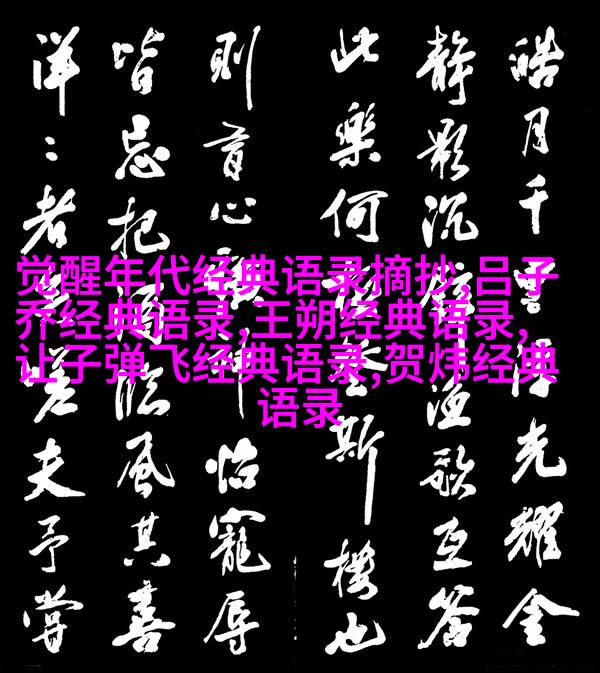 皓月千里浮光耀金
静影沉璧漁歌互答
此樂何極登斯樓也
則有心曠神怡寵辱
皆忘把酒臨風其喜
洋洋者矣嗟夫予嘗
觉醒年代经典语录摘抄,吕子
乔经典语录,王朔经典语录,
让子弹飞经典语录,贺炜经典
语录